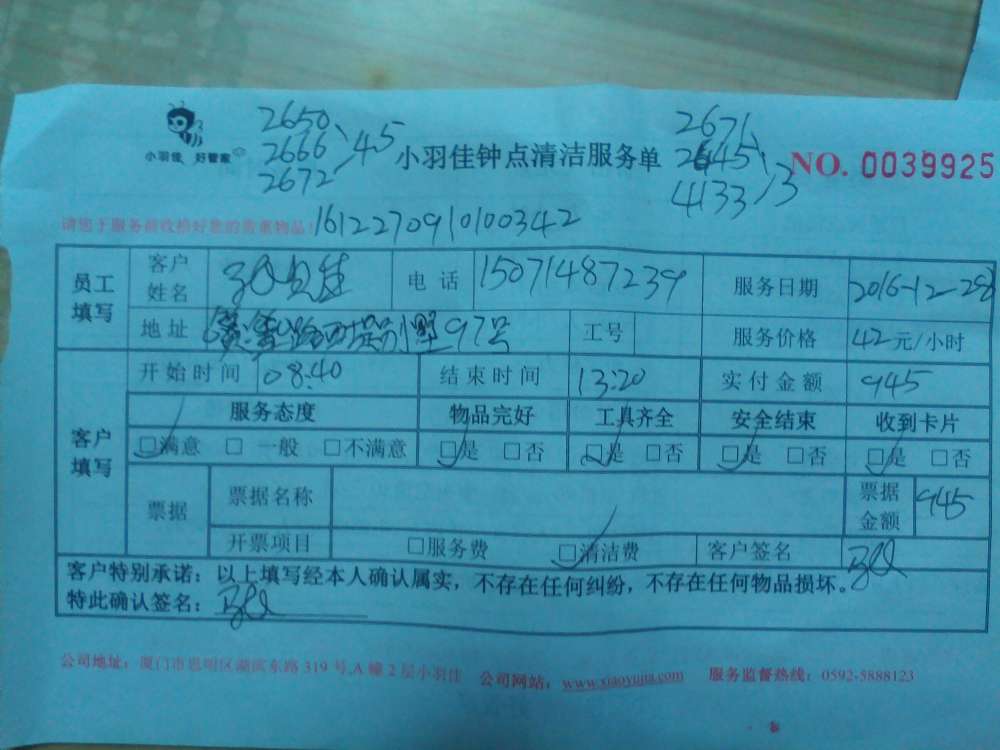 2650、
2666、45
2672
2671、
2645、
4133/3
小羽佳 好管家
小羽佳钟点清洁服务单
NO. 0039925
请您于服务前收拾好您的贵重物品!
1612270910100342
员工填写
客户姓名
电话 15071487239
服务日期 2016-12-28
地址 97号
工号
服务价格 42元/小时
客户填写
开始时间 08:40
结束时间 13:20
实付金额 945
服务态度 物品完好 工具齐全 安全结束 收到卡片
□满意 □一般 □不满意 □是 □否 □是 □否 □是 □否 □是 □否
票据
票据名称
票据金额 945
开票项目 □服务费 □清洁费 客户签名
客户特别承诺：以上填写经本人确认属实，不存在任何纠纷，不存在任何物品损坏。
特此确认签名：
公司地址：厦门市思明区湖滨东路319号,A幢2层小羽佳 公司网站：www.xiaoyujia.com 服务监督热线：0592-5888123